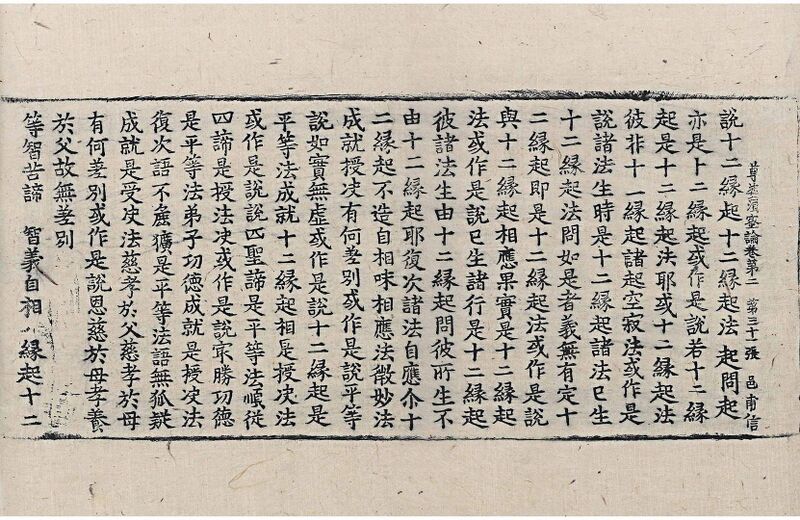 尊婆須蜜論卷第二 第三十一張 邑甫信
說十二縁起十二縁起法 起問起
亦是十二縁起或作是說若十二縁
起是十二縁起法耶或十二縁起法
彼非十一縁起諸起空寂法或作是
說諸法生時是十二縁起諸法已生
十二縁起法問如是者義無有定十
二縁起即是十二縁起法或作是說
與十二縁起相應果實是十二縁起
法或作是說已生諸行是十二縁起
彼諸法生由十二縁起問彼所生不
由十二縁起耶復次諸法自應尒十
二縁起不造自相味相應法微妙法
成就授决有何差別或作是說平等
說如實無虛或作是說十二縁起是
平等法成就十二縁起相是授决法
或作是說說四聖諦是平等法順從
四諦是授法决或作是說㝡勝功德
是平等法弟子功德成就是授决法
復次語不麁獷是平等法語無狐疑
成就是受决法慈孝於父慈孝於母
有何差別或作是說恩慈於母孝養
於父故無差別
等智苦諦 智義自相 縁起十二